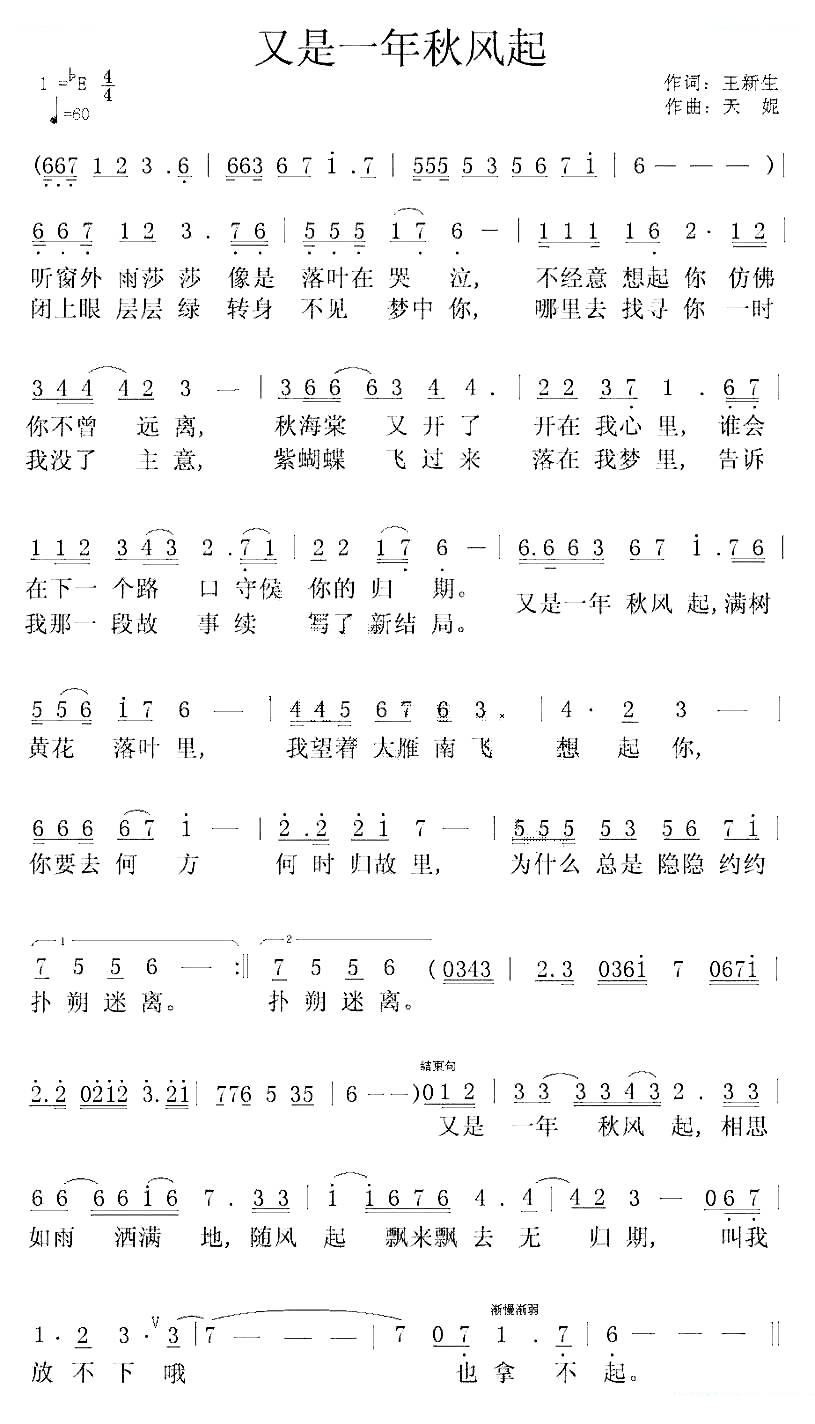 又是一年秋风起
1=♭E 4/4
♩=60
作词：王新生
作曲：天 妮
(667 1 2 3 .6 | 663 6 7 i .7 | 555 5 3 5 6 7 i | 6 — — — )|
6 6 7 1 2 3 . 7 6 | 5 5 5 1 7 6 — | 1 1 1 1 6 2 · 1 2 |
听窗外 雨莎 莎 像是 落叶在 哭 泣, 不经意 想起 你 仿佛
闭上眼 层层 绿 转身 不见 梦中 你, 哪里去 找寻 你 一时
3 4 4 4 2 3 — | 3 6 6 6 3 4 4 . | 2 2 3 7 1 . 6 7 |
你不曾 远 离, 秋海棠 又 开 了 开在 我心 里, 谁会
我没了 主 意, 紫蝴蝶 飞 过 来 落在 我梦 里, 告诉
1 1 2 3 4 3 2 . 7 1 | 2 2 1 7 6 — | 6.6 6 3 6 7 i . 7 6 |
在下一 个路 口 守侯 你的 归 期。
又是一年 秋风 起,满树
我那一 段故 事 续 写了 新结 局。
5 5 6 i 7 6 — | 4 4 5 6 7 6 3 . | 4 · 2 3 — |
黄花 落叶 里, 我望着 大雁 南 飞 想 起 你,
6 6 6 6 7 i — | 2 . 2 2 i 7 — | 5 5 5 5 3 5 6 7 i |
你要去 何 方 何 时 归故 里, 为什么 总是 隐隐 约约
1 2
7 5 5 6 — :‖ 7 5 5 6 (0343 | 2.3 036i 7 067i |
扑 朔 迷 离。 扑 朔 迷 离。
结束句
2.2 02i2 3.2i | 776 5 35 | 6 — — )0 1 2 | 3 3 3 3 4 3 2 . 3 3 |
又是 一年 秋风 起, 相思
6 6 6 6 i 6 7 . 3 3 | i i 6 7 6 4 . 4 | 4 2 3 — 0 6 7 |
如雨 洒满 地, 随风 起 飘来飘 去 无 归 期, 叫我
渐慢渐弱
1 · 2 3 · V 3 | 7 — — — | 7 0 7 1 . 7 | 6 — — — ‖
放 不 下 哦 也 拿 不 起。